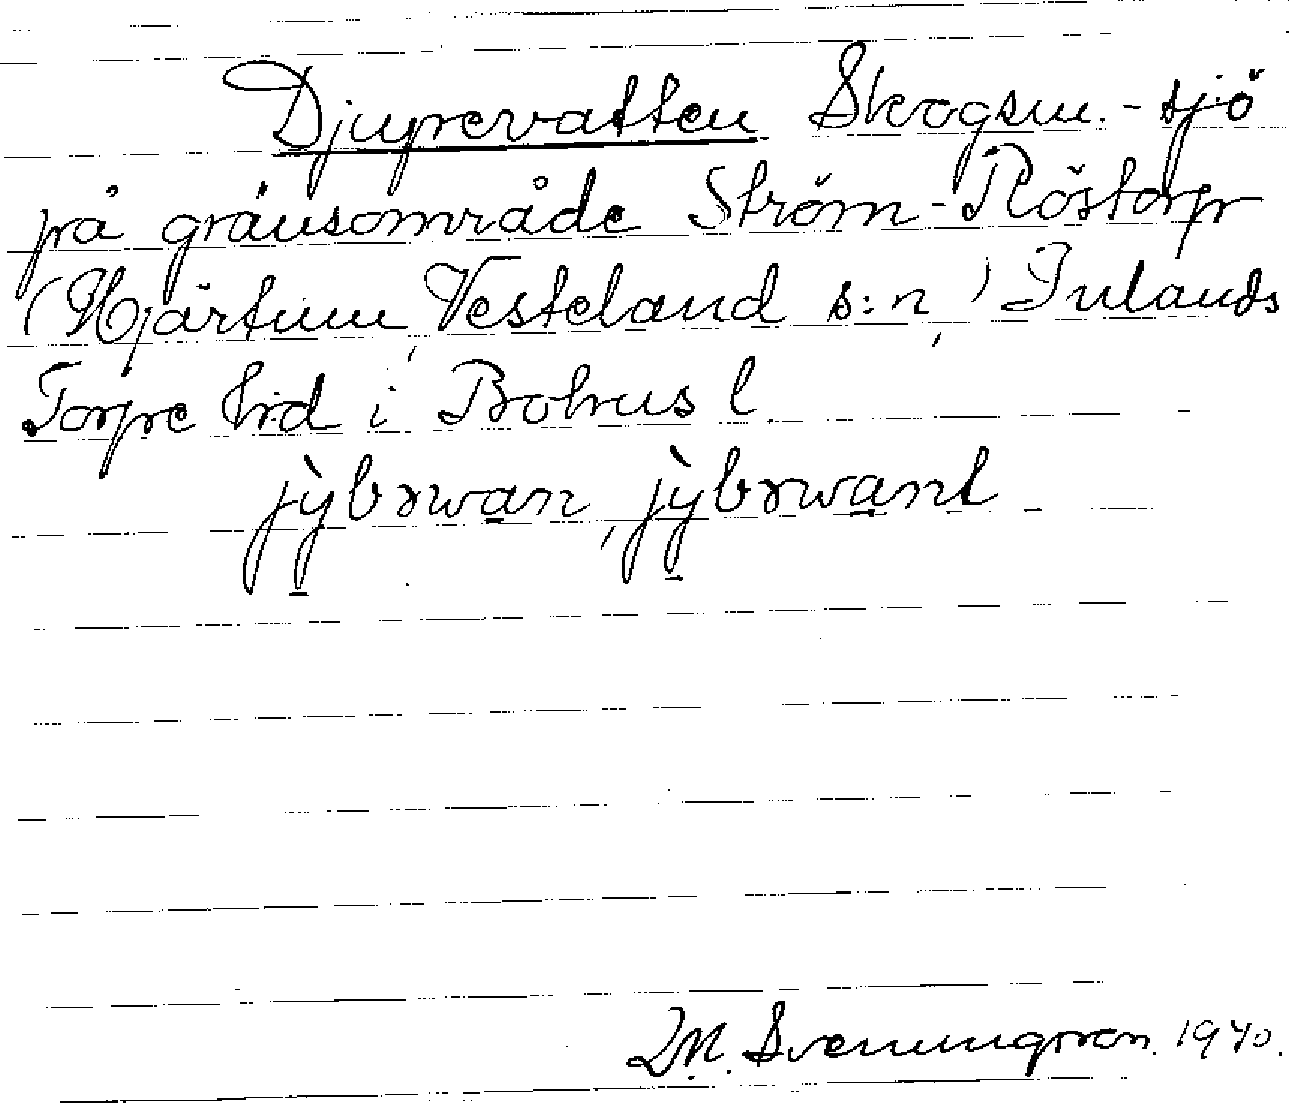 Djupevatten Skogsm.-sjö
på gränsområde Ström-Röstorp
(Hjärtum, Vesteland s:n,) Inlands
Torpe hrd i Bohus l.
jỳbrwan, jỳbrwant
M. Svenungsson. 1940.